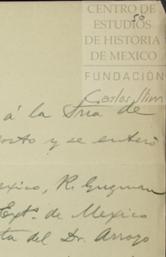 CENTRO DE
ESTUDIOS
DE HISTORIA
DE MEXICO
FUNDACIÓN
Carlos Slim
á la Sria de
y se enteró
exico, R. Guzman
Ext. de Mexico
ta del Dr. Arroyo